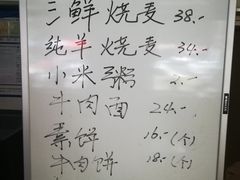 三鲜烧麦 38.-
纯羊烧麦 34.-
小米粥
牛肉面 24.-
素饼 16.-(个)
牛肉饼 18.-(个)